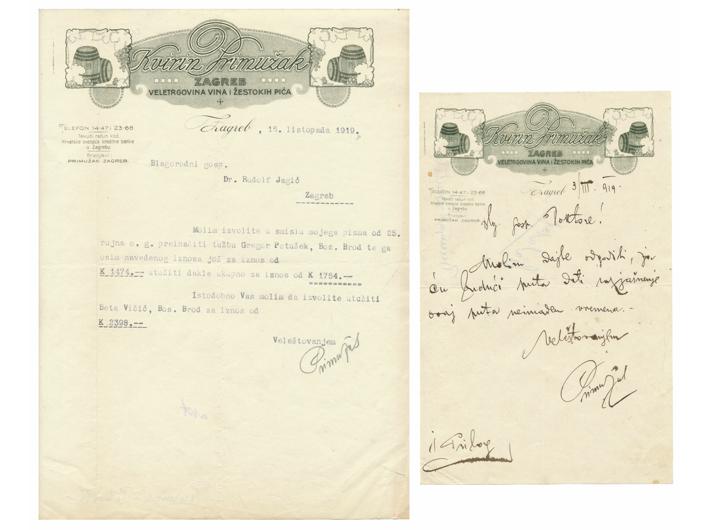 Kvirin Primužak
ZAGREB
VELETRGOVINA VINA I ŽESTOKIH PIĆA
TELEFON 14-47 i 23-66
Tekući račun kod
Hrvatske zemalj. kreditne banke
u Zagrebu
Brzojavi:
PRIMUŽAK ZAGREB.
Zagreb, 15. listopada 1919.
Blagorodni gosp.
Dr. Rudolf Jagić
Zagreb
Molim izvolite u smislu mojega pisma od 25.
rujna o. g. preinačiti tužbu Gregor Potušek, Bos. Brod te ga
osim navedenog iznosa još za iznos od
K 1474.-- utužiti dakle skupno za iznos od K 1754.--
Istodobno Vas molim da izvolite utužiti
Beta Vičić, Bos. Brod za iznos od
K 2398.--
Veleštovanjem
Primužak
Kvirin Primužak
ZAGREB
VELETRGOVINA VINA I ŽESTOKIH PIĆA
TELEFON 14-47 i 23-66
PRIMUŽAK ZAGREB.
Zagreb 3/III. 919.
gosp. Doktore!
Molim dajte odgoditi, ja
ću budući puta dati razjašnjenje
ovaj puta neimadem vremena.-
Veleštovanjem
Primužak
1 Prilog